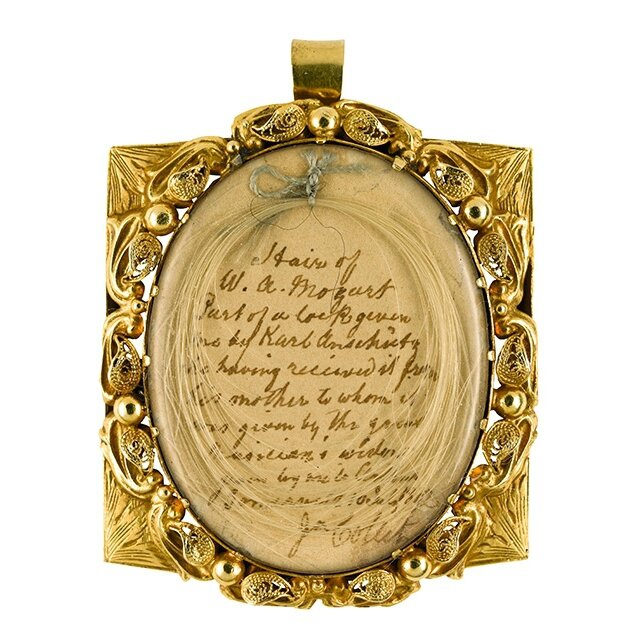 Hair of
W. A. Mozart
Part of a lock given
me by Karl Anschütz
he having received it from
his mother to whom it
was given by the great
Musician's widow